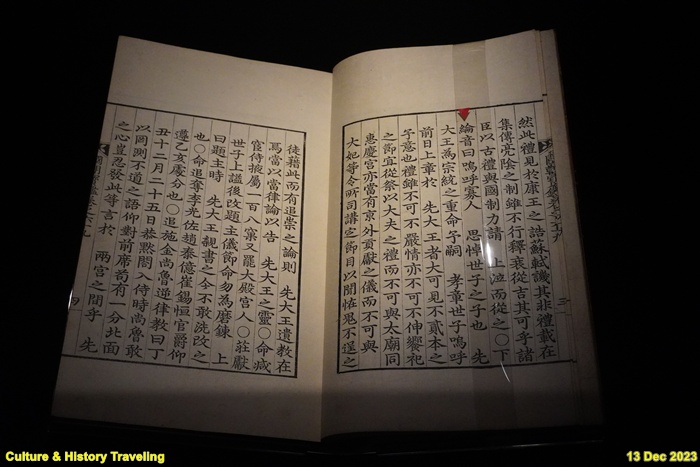 然此禮見於康王之誥蘇軾譏其非禮載在
集傳亮陰之制雖不行釋衰從吉其可乎諸
臣以古禮與國制力請 上泣而從之○下
綸音曰嗚呼寡人 思悼世子之子也 先
大王爲宗統之重命予嗣 孝章世子嗚呼
前日上章於 先大王者大可見不貳本之
予意也禮雖不可不嚴情亦不可不伸饗祀
之節宜從祭以大夫之禮而不可與太廟同
惠慶宮亦當有京外貢獻之儀而不可與
大妃等令所司講定節目以聞怪鬼不逞之
三
徒藉此而有追崇之論則 先大王遺敎在
焉當以當律論以告 先大王之靈○命减
宦侍掖屬一百八窠又罷大殿宮人○莊獻
世子上諡後改題主儀節命勿爲磨鍊 上
曰題主時 先大王親書之今不敢洗改之
也○命追奪李光佐趙泰億崔錫恒官爵仰
遵乙亥處分也○追施金尙魯逆律敎曰丁
丑十二月二十五日恭默閤入侍時尙魯敢
以罔測不道之語仰對前席苟有一分北面
之心豈忍發此等言於 兩宮之間乎 先
四
Culture & History Traveling
13 Dec 2023